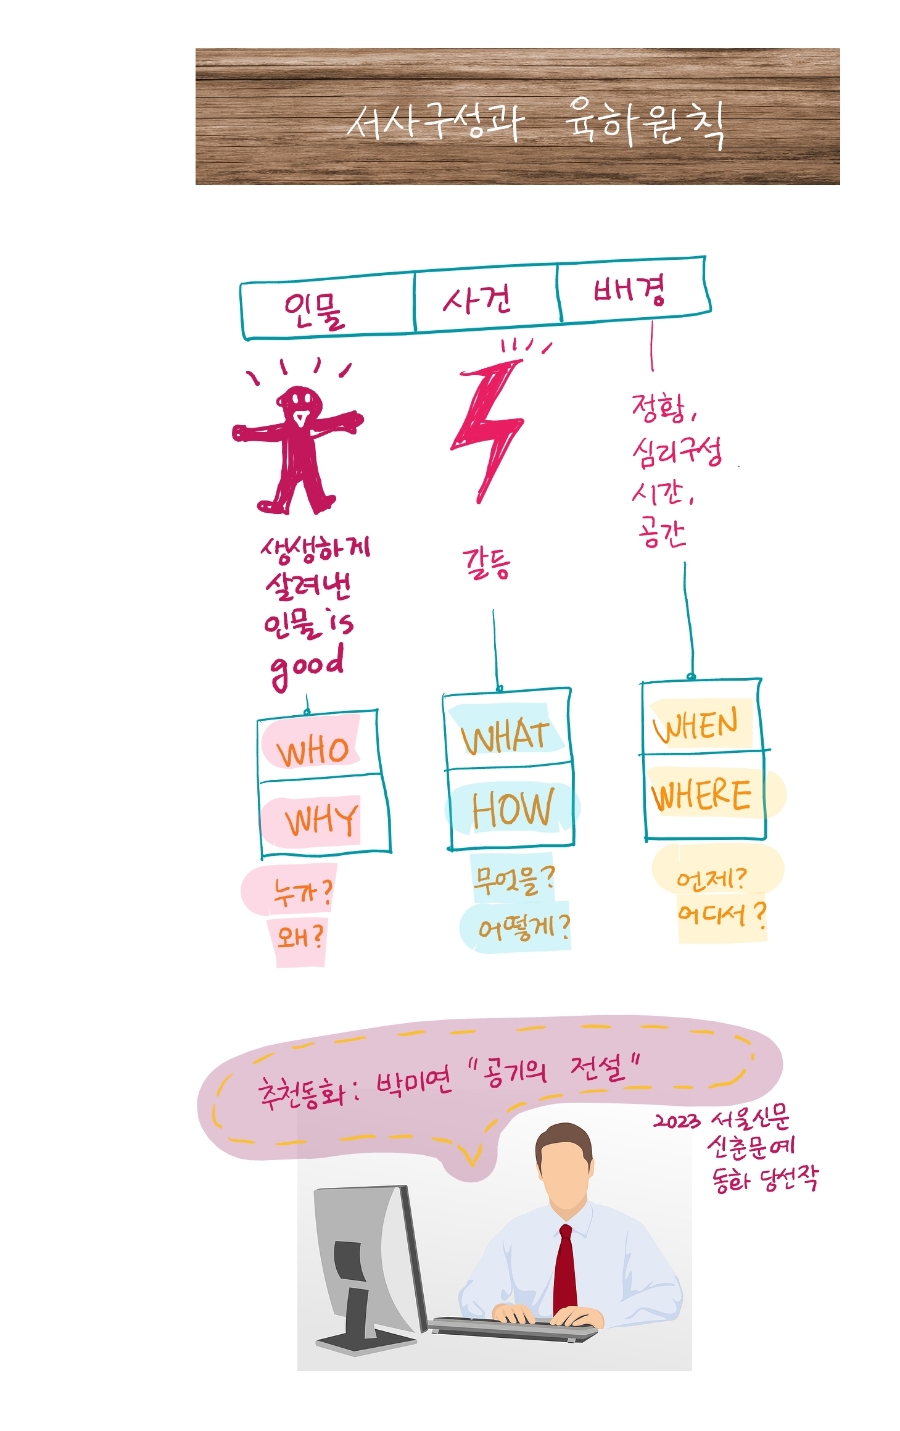 서사구성과 육하원칙
인물 사건 배경
정황,
심리구성
시간,
공간
생생하게
살려낸
인물 is
good
갈등
WHO
WHY
누가?
왜?
WHAT
HOW
무엇을?
어떻게?
WHEN
WHERE
언제?
어디서?
추천동화: 박미연 "공기의 전설"
2023 서울신문
신춘문예
동화 당선작